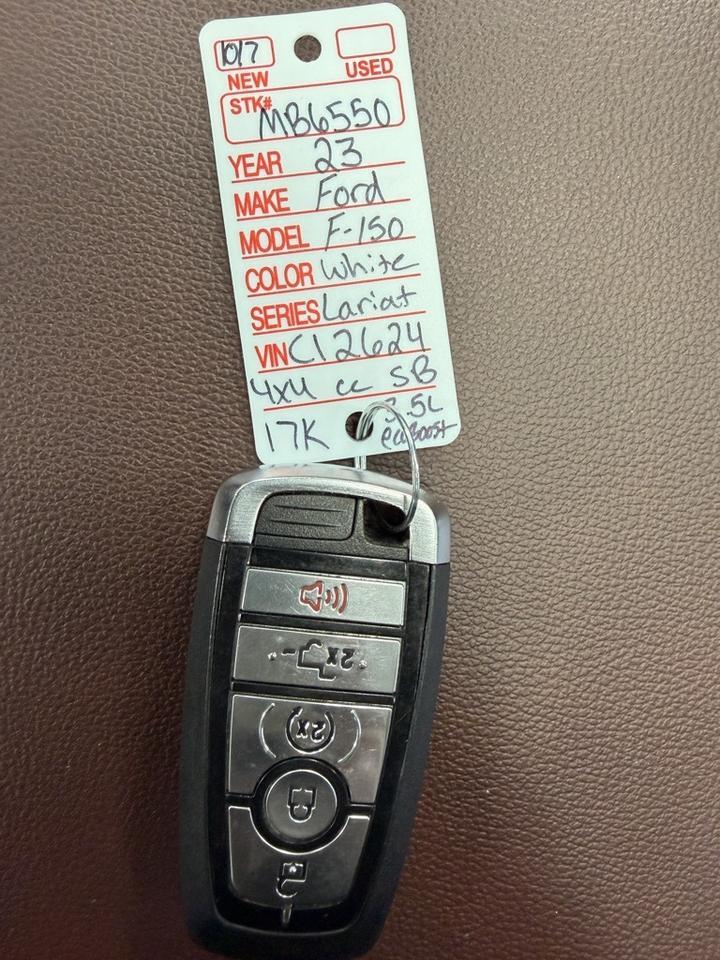 10/7
NEW USED
STK# MB6550
YEAR 23
MAKE Ford
MODEL F-150
COLOR White
SERIES Lariat
VIN C12624
4x4 cc SB
17K 3.5L
ecoBoost
2x
2x